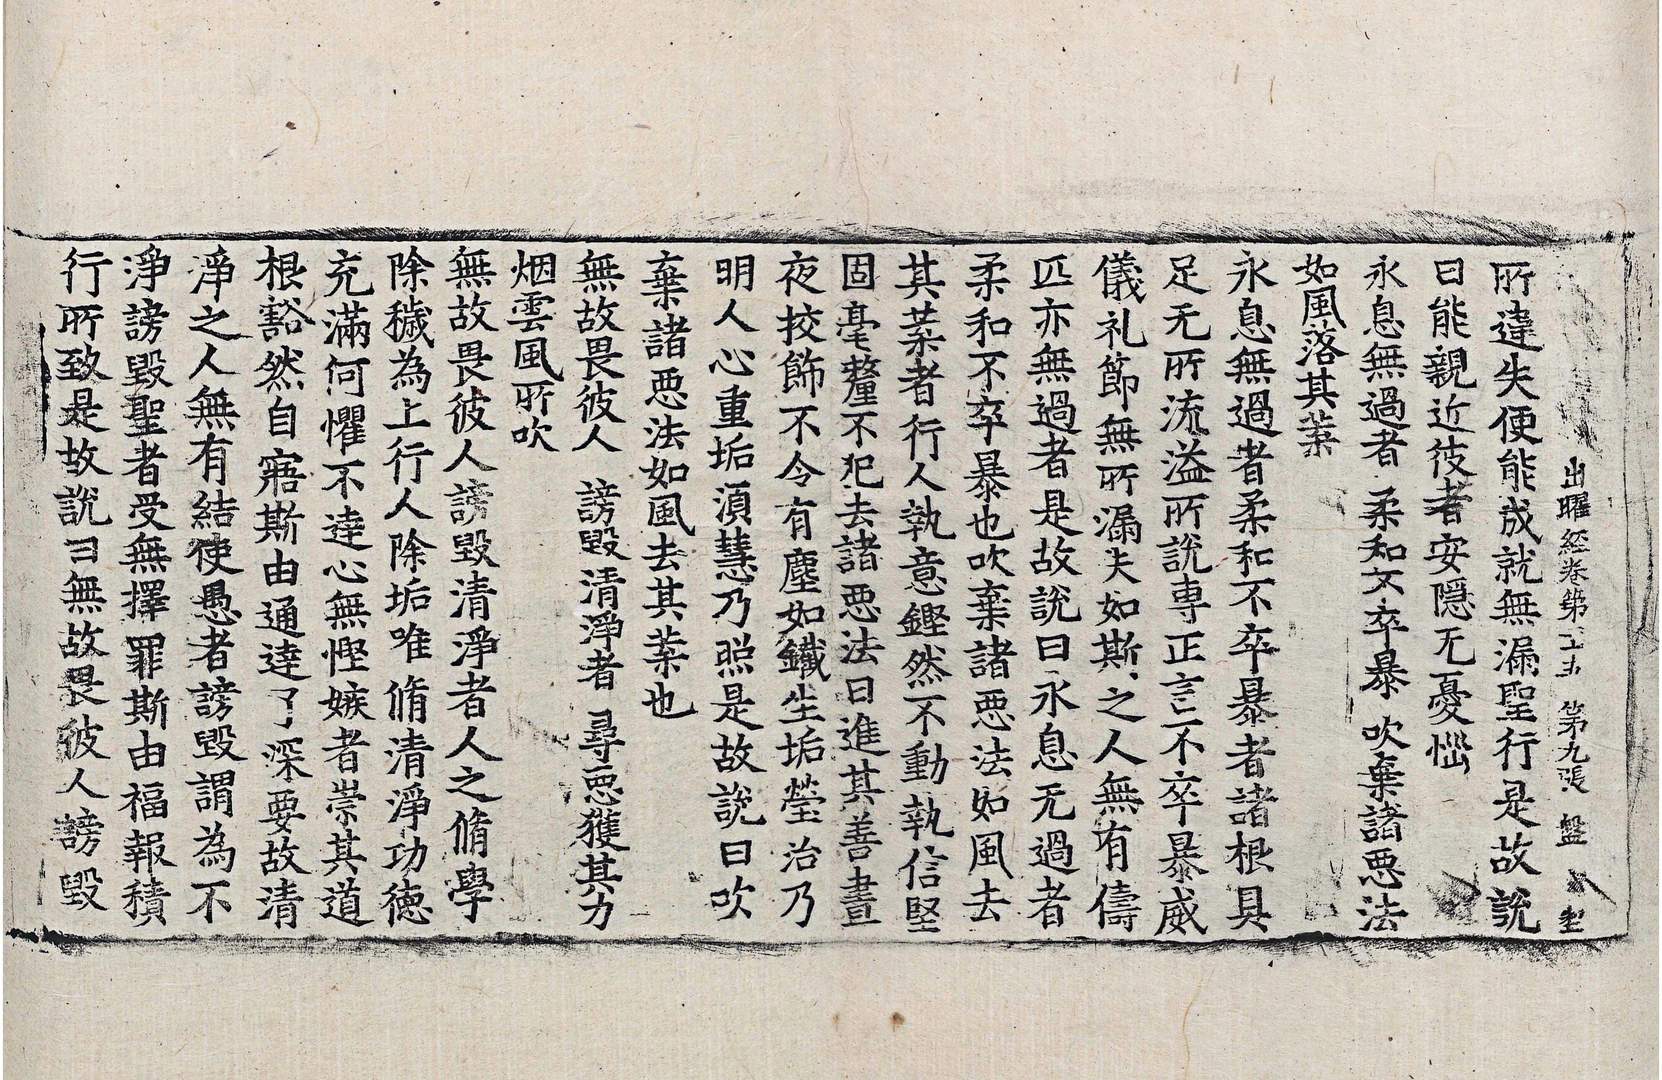 出曜經卷第二十五 第九張 盤
所違失便能成就無漏聖行是故說
曰能親近彼者安隱无憂惱
永息無過者 柔和不卒暴 吹棄諸惡法
如風落其葉
永息無過者柔和不卒暴者諸根具
足无所流溢所說專正言不卒暴威
儀礼節無所漏失如斯之人無有儔
匹亦無過者是故說曰永息无過者
柔和不卒暴也吹棄諸惡法如風去
其葉者行人執意鏗然不動執信堅
固毫釐不犯去諸惡法日進其善晝
夜挍飾不令有塵如鐵生垢瑩治乃
明人心重垢湏慧乃照是故說曰吹
棄諸惡法如風去其葉也
無故畏彼人 謗毀清淨者 尋惡獲其力
烟雲風所吹
無故畏彼人謗毀清淨者人之脩學
除穢為上行人除垢唯脩清淨功德
充滿何懼不達心無慳嫉者崇其道
根豁然自寤斯由通達了深要故清
淨之人無有結使愚者謗毀謂為不
淨謗毀聖者受無擇罪斯由福報積
行所致是故說曰無故畏彼人謗毀